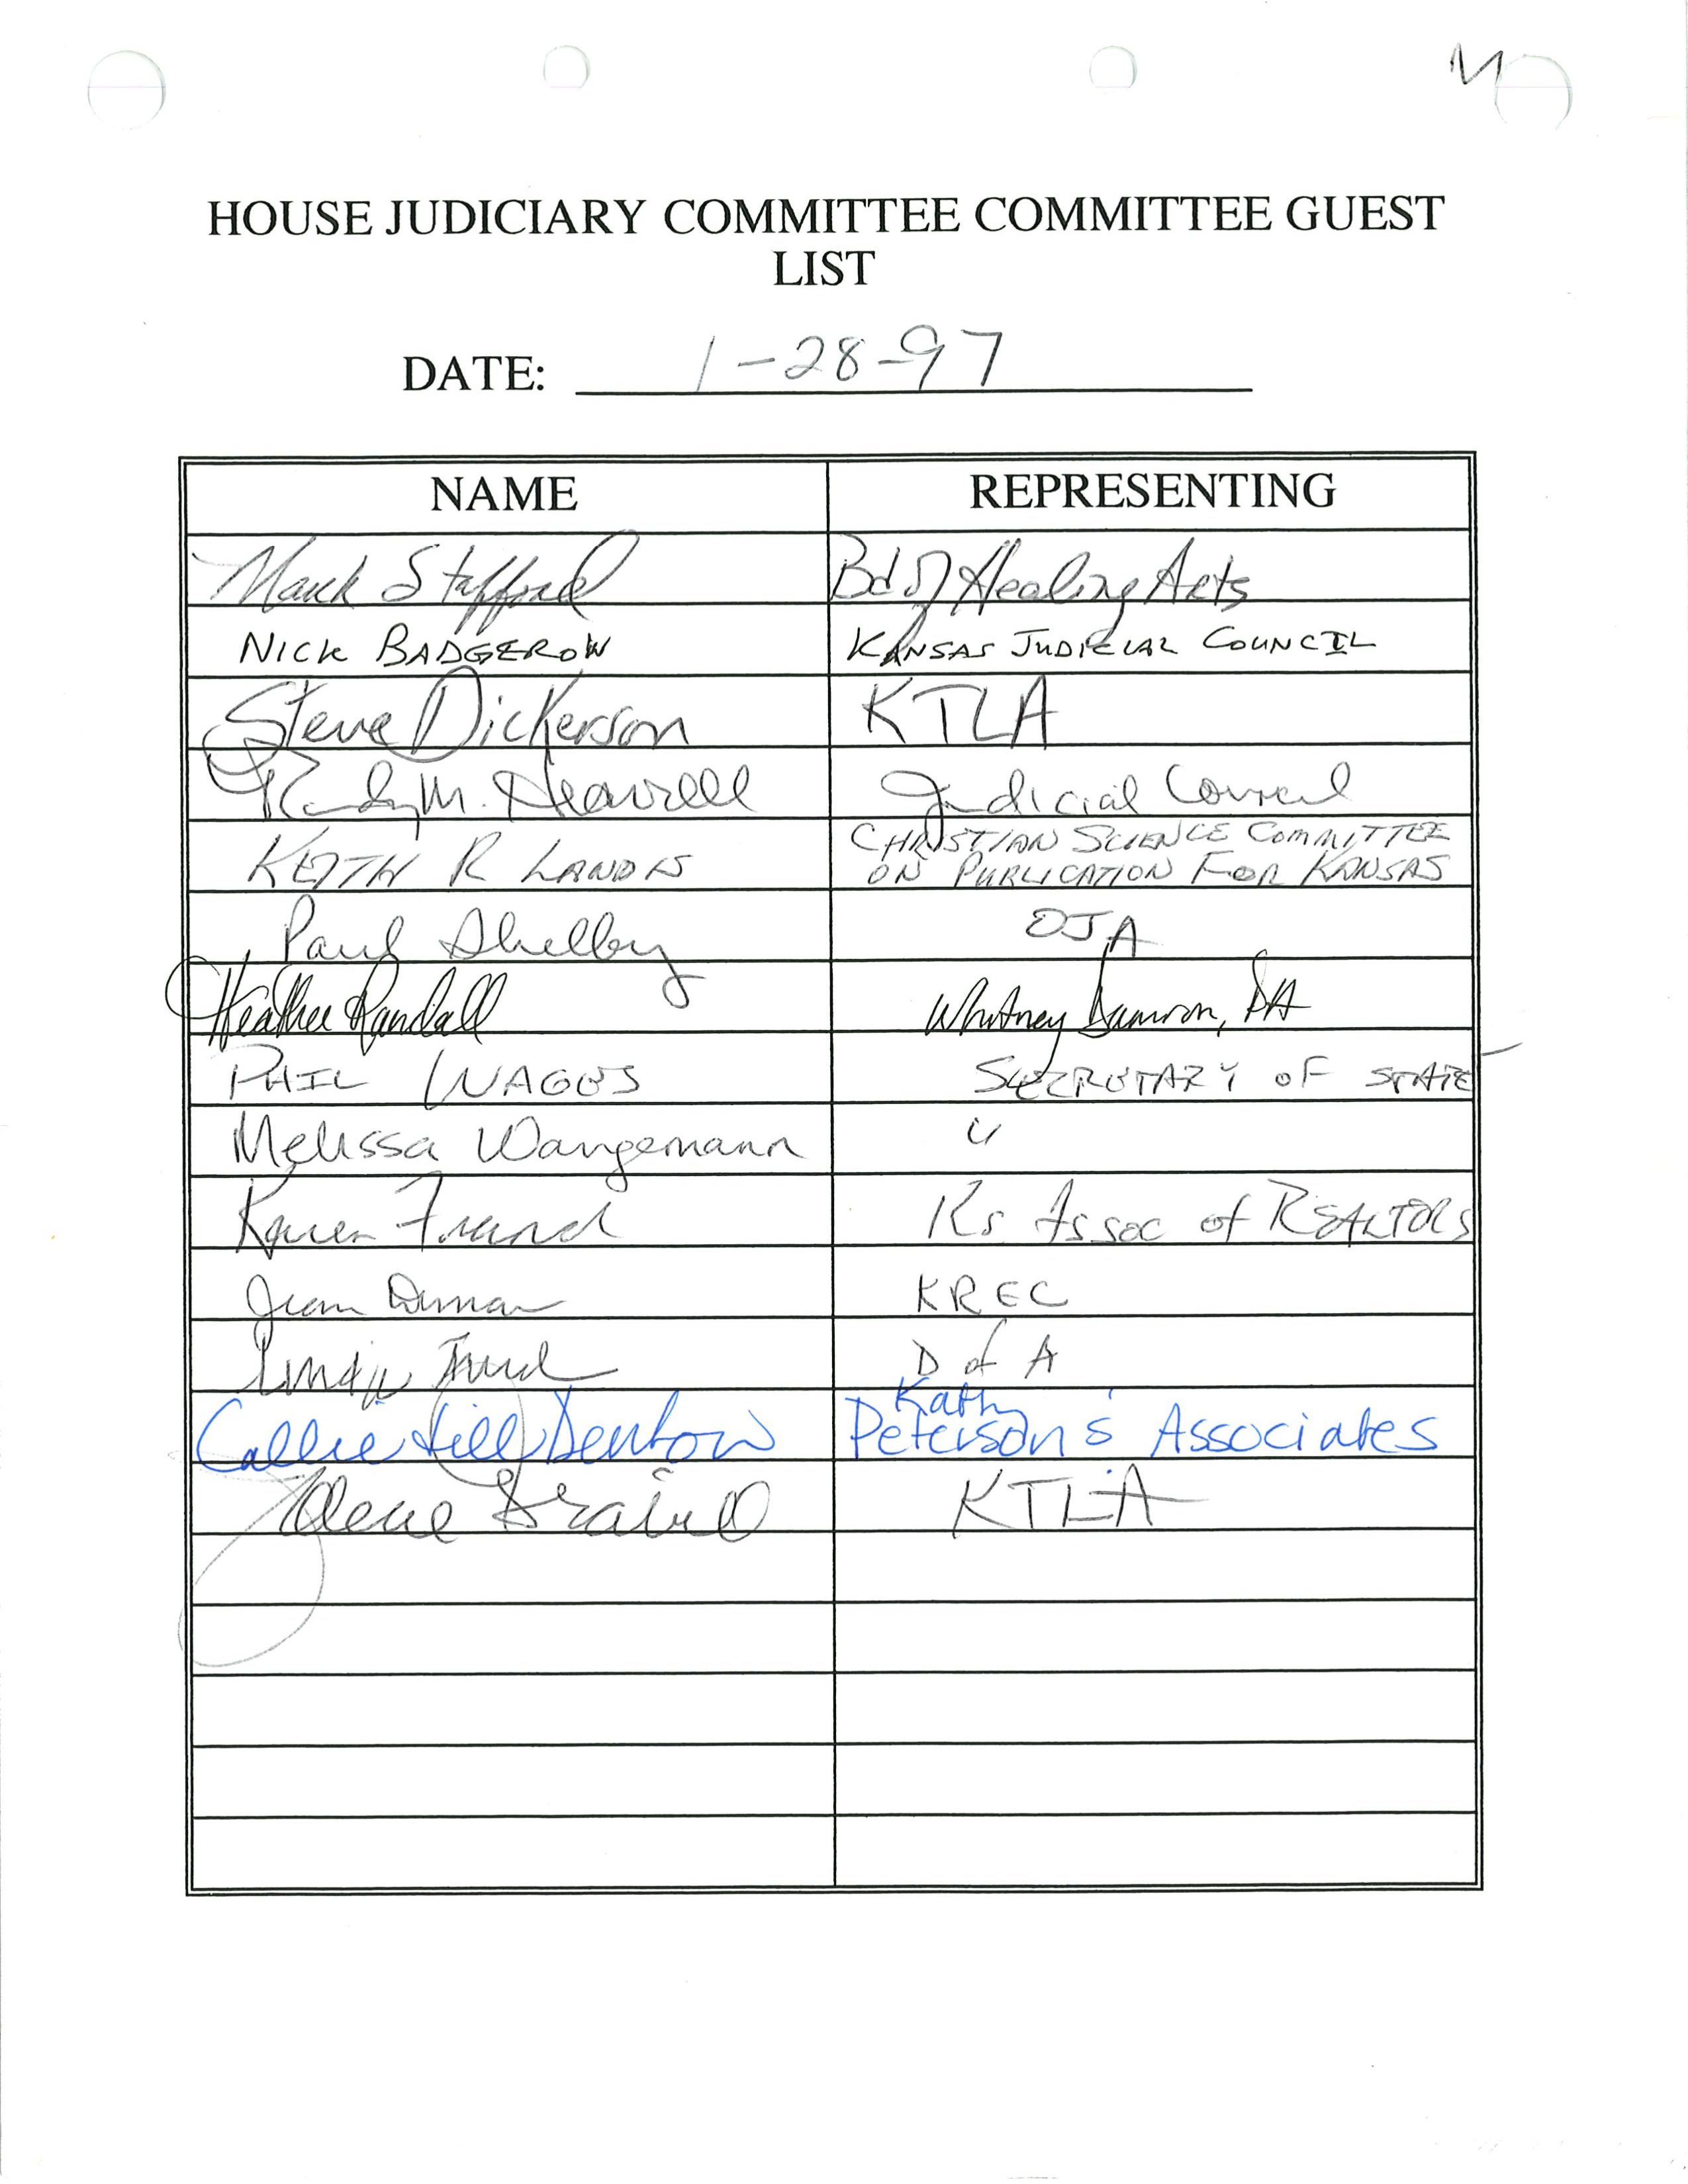 HOUSE JUDICIARY COMMITTEE COMMITTEE GUEST
LIST
DATE: 1-28-97
NAME REPRESENTING
Mark Stafford Bd of Healing Arts
NICK BADGEROW KANSAS JUDICIAL COUNCIL
Steve Dickerson KTLA
Randy M. Hearrell Judicial Council
KEITH R LANDIS CHRISTIAN SCIENCE COMMITTEE
ON PUBLICATION FOR KANSAS
Paul Shelby OJA
Heather Randall Whitney Damron, PA
PHIL SECRETARY OF STATE
Melissa Wangemann "
Karen France Ks Assoc of REALTORS
Jean KREC
D of A
Callie Jill Denton Kathy
Peterson's Associates
KTLA